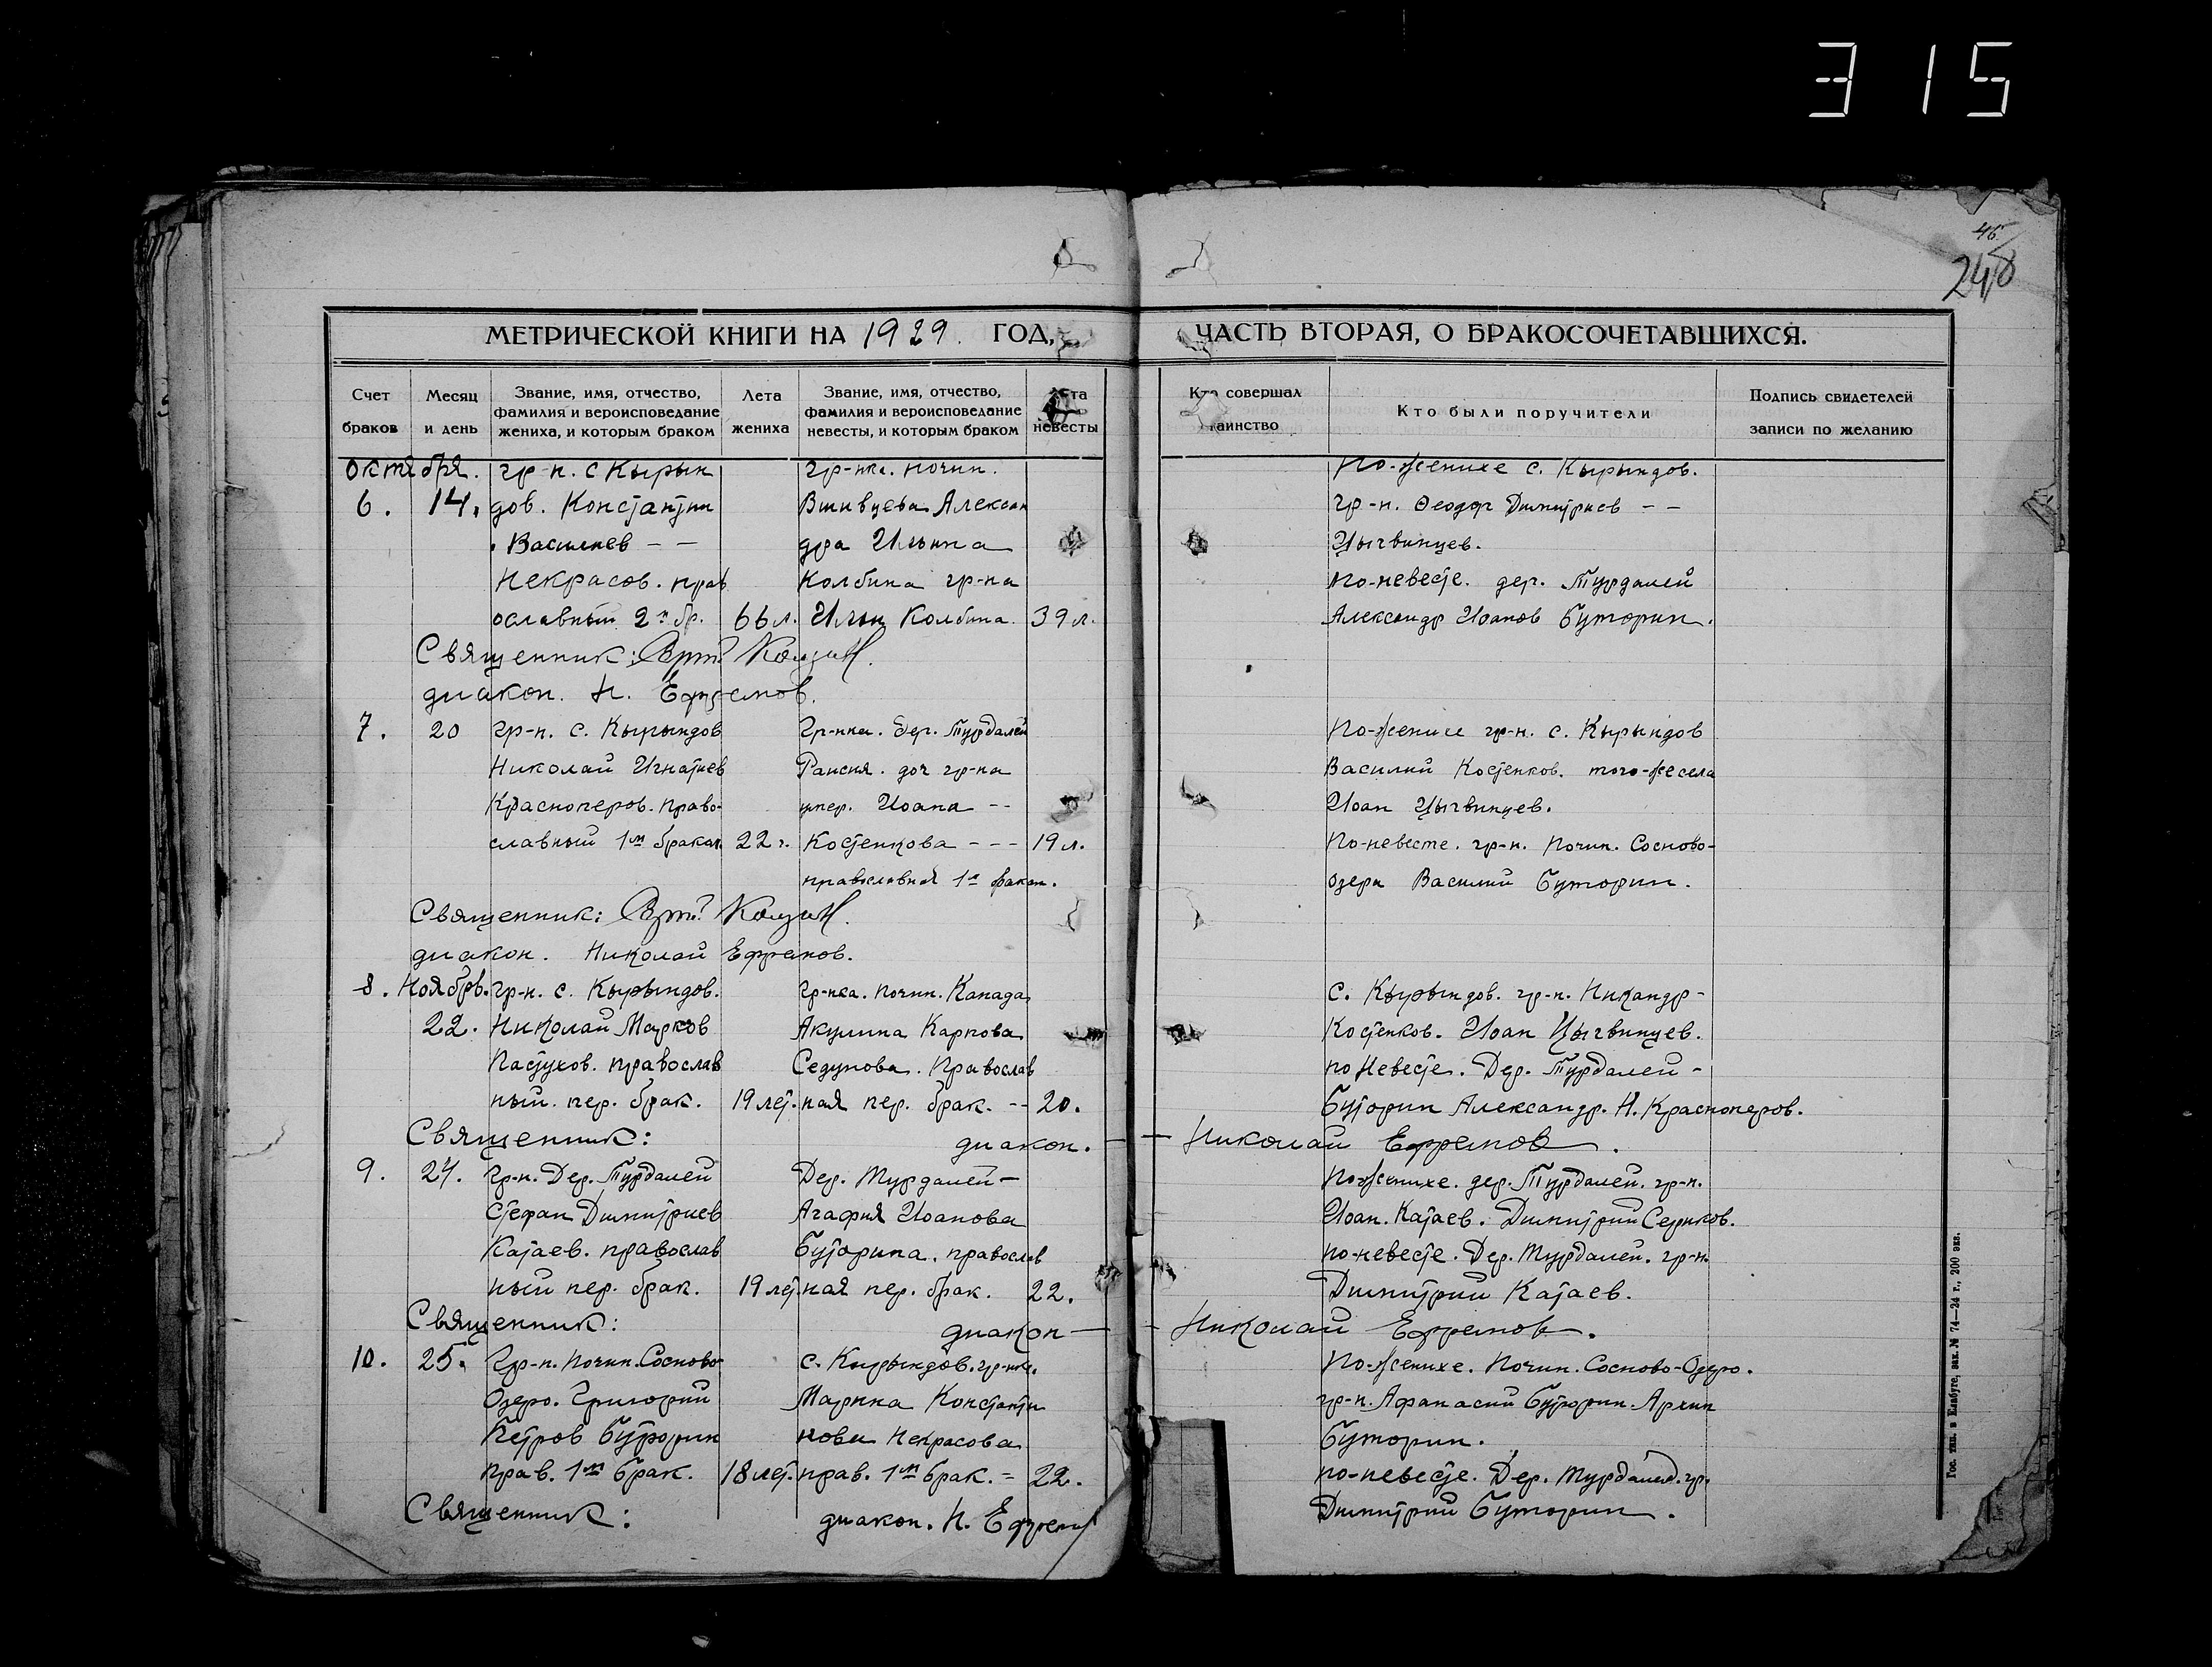 315
46
248
МЕТРИЧЕСКОЙ КНИГИ НА 1929. ГОД, ЧАСТЬ ВТОРАЯ, О БРАКОСОЧЕТАВШИХСЯ.
Счет браков
Месяц и день
Звание, имя, отчество, фамилия и вероисповедание жениха, и которым браком
Лета жениха
Звание, имя, отчество, фамилия и вероисповедание невесты, и которым браком
Лета невесты
Кто совершал таинство
Кто были поручители
Подпись свидетелей записи по желанию
октября. гр-н. с Кырын гр-нка. почин. По-женихе с. Кырындов.
6. 14. дов. Константин Вшивцева Алексан гр-н. Феодор Димитриев - -
Василиев - - дра Ильина Цыгвинцев.
Некрасов. прав Колбина гр-на по-невесте. дер. Турдалей
ославный 2й бр. 66 л. Ильи Колбина. 39 л. Александр Иоанов Буторин.
Священник:
диакон. Н. Ефремов.
7. 20 гр-н. с. Кырындов гр-нка. дер. Турдалей По-женихе гр-н. с. Кырындов
Николай Игнатиев Раисия. доч гр-на Василий Костенков. того-же села
Красноперов. право- умер. Иоана - - Иоан Цыгвинцев.
славный 1м браком 22 г. Костенкова - - - 19 л. По-невесте. гр-н. Почин. Сосново-
православная 1м браком. озера Василий Буторин.
Священник:
диакон. Николай Ефремов.
8. Ноябрь. гр-н. с. Кырындов. гр-нка. почин. Канада с. Кырындов. гр-н. Никандр -
22. Николай Марков Акулина Карпова Костенков. Иоан Цыгвинцев.
Пастухов. православ Седунова. Православ по Невесте. Дер. Турдалей -
ный. пер. брак. 19 лет. ная пер. брак. - - 20. Буторин Александр. Н. Красноперов.
Священник: диакон. - - Николай Ефремов.
9. гр-н. Дер. Турдалей Дер. Турдалей - По-женихе. дер. Турдалей. гр-н.
Стефан Димитриев Агафия Иоанова Иоан. Катаев. Димитрий
Катаев. православ Буторина. православ по-невесте. Дер. Турдалей. гр-н.
ный пер. брак. 19 лет. ная пер. брак. 22. Димитрий Катаев.
Священник: диакон - - Николай Ефремов.
10. 25. Гр-н. почин. Сосново- с. Кырындов. гр-нка. По-женихе. Почин. Сосново-Озеро.
Озеро. Григорий Марина Константи гр-н. Афанасий Буторин. Архип
Петров Буторин нова Некрасова Буторин.
прав. 1м брак. 18 лет. прав. 1м брак. = 22. по-невесте. Дер. Турдалей. гр.
Священник: диакон. Н. Ефремов Димитрий Буторин.
Гос. тип. в Елабуге, зак. № 74—24 г., 200 экз.